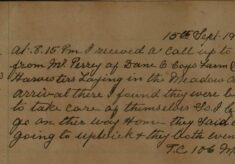 15th Sept. 19
At 8.15 Pm I received a call up to
from Mr. Perry of Dane E Coys Farm
Harvesters Laying in the Meadow
arrival there I found they were
to take care of themselves So I
go on their way Home they Said
going to upwick & they both
T.C 106